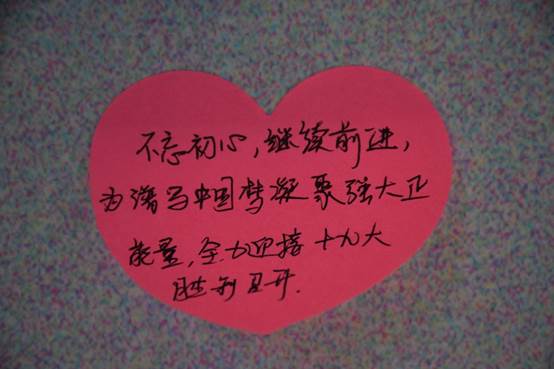 不忘初心，继续前进，
为谱写中国梦凝聚强大正
能量，全力迎接十九大
胜利召开.